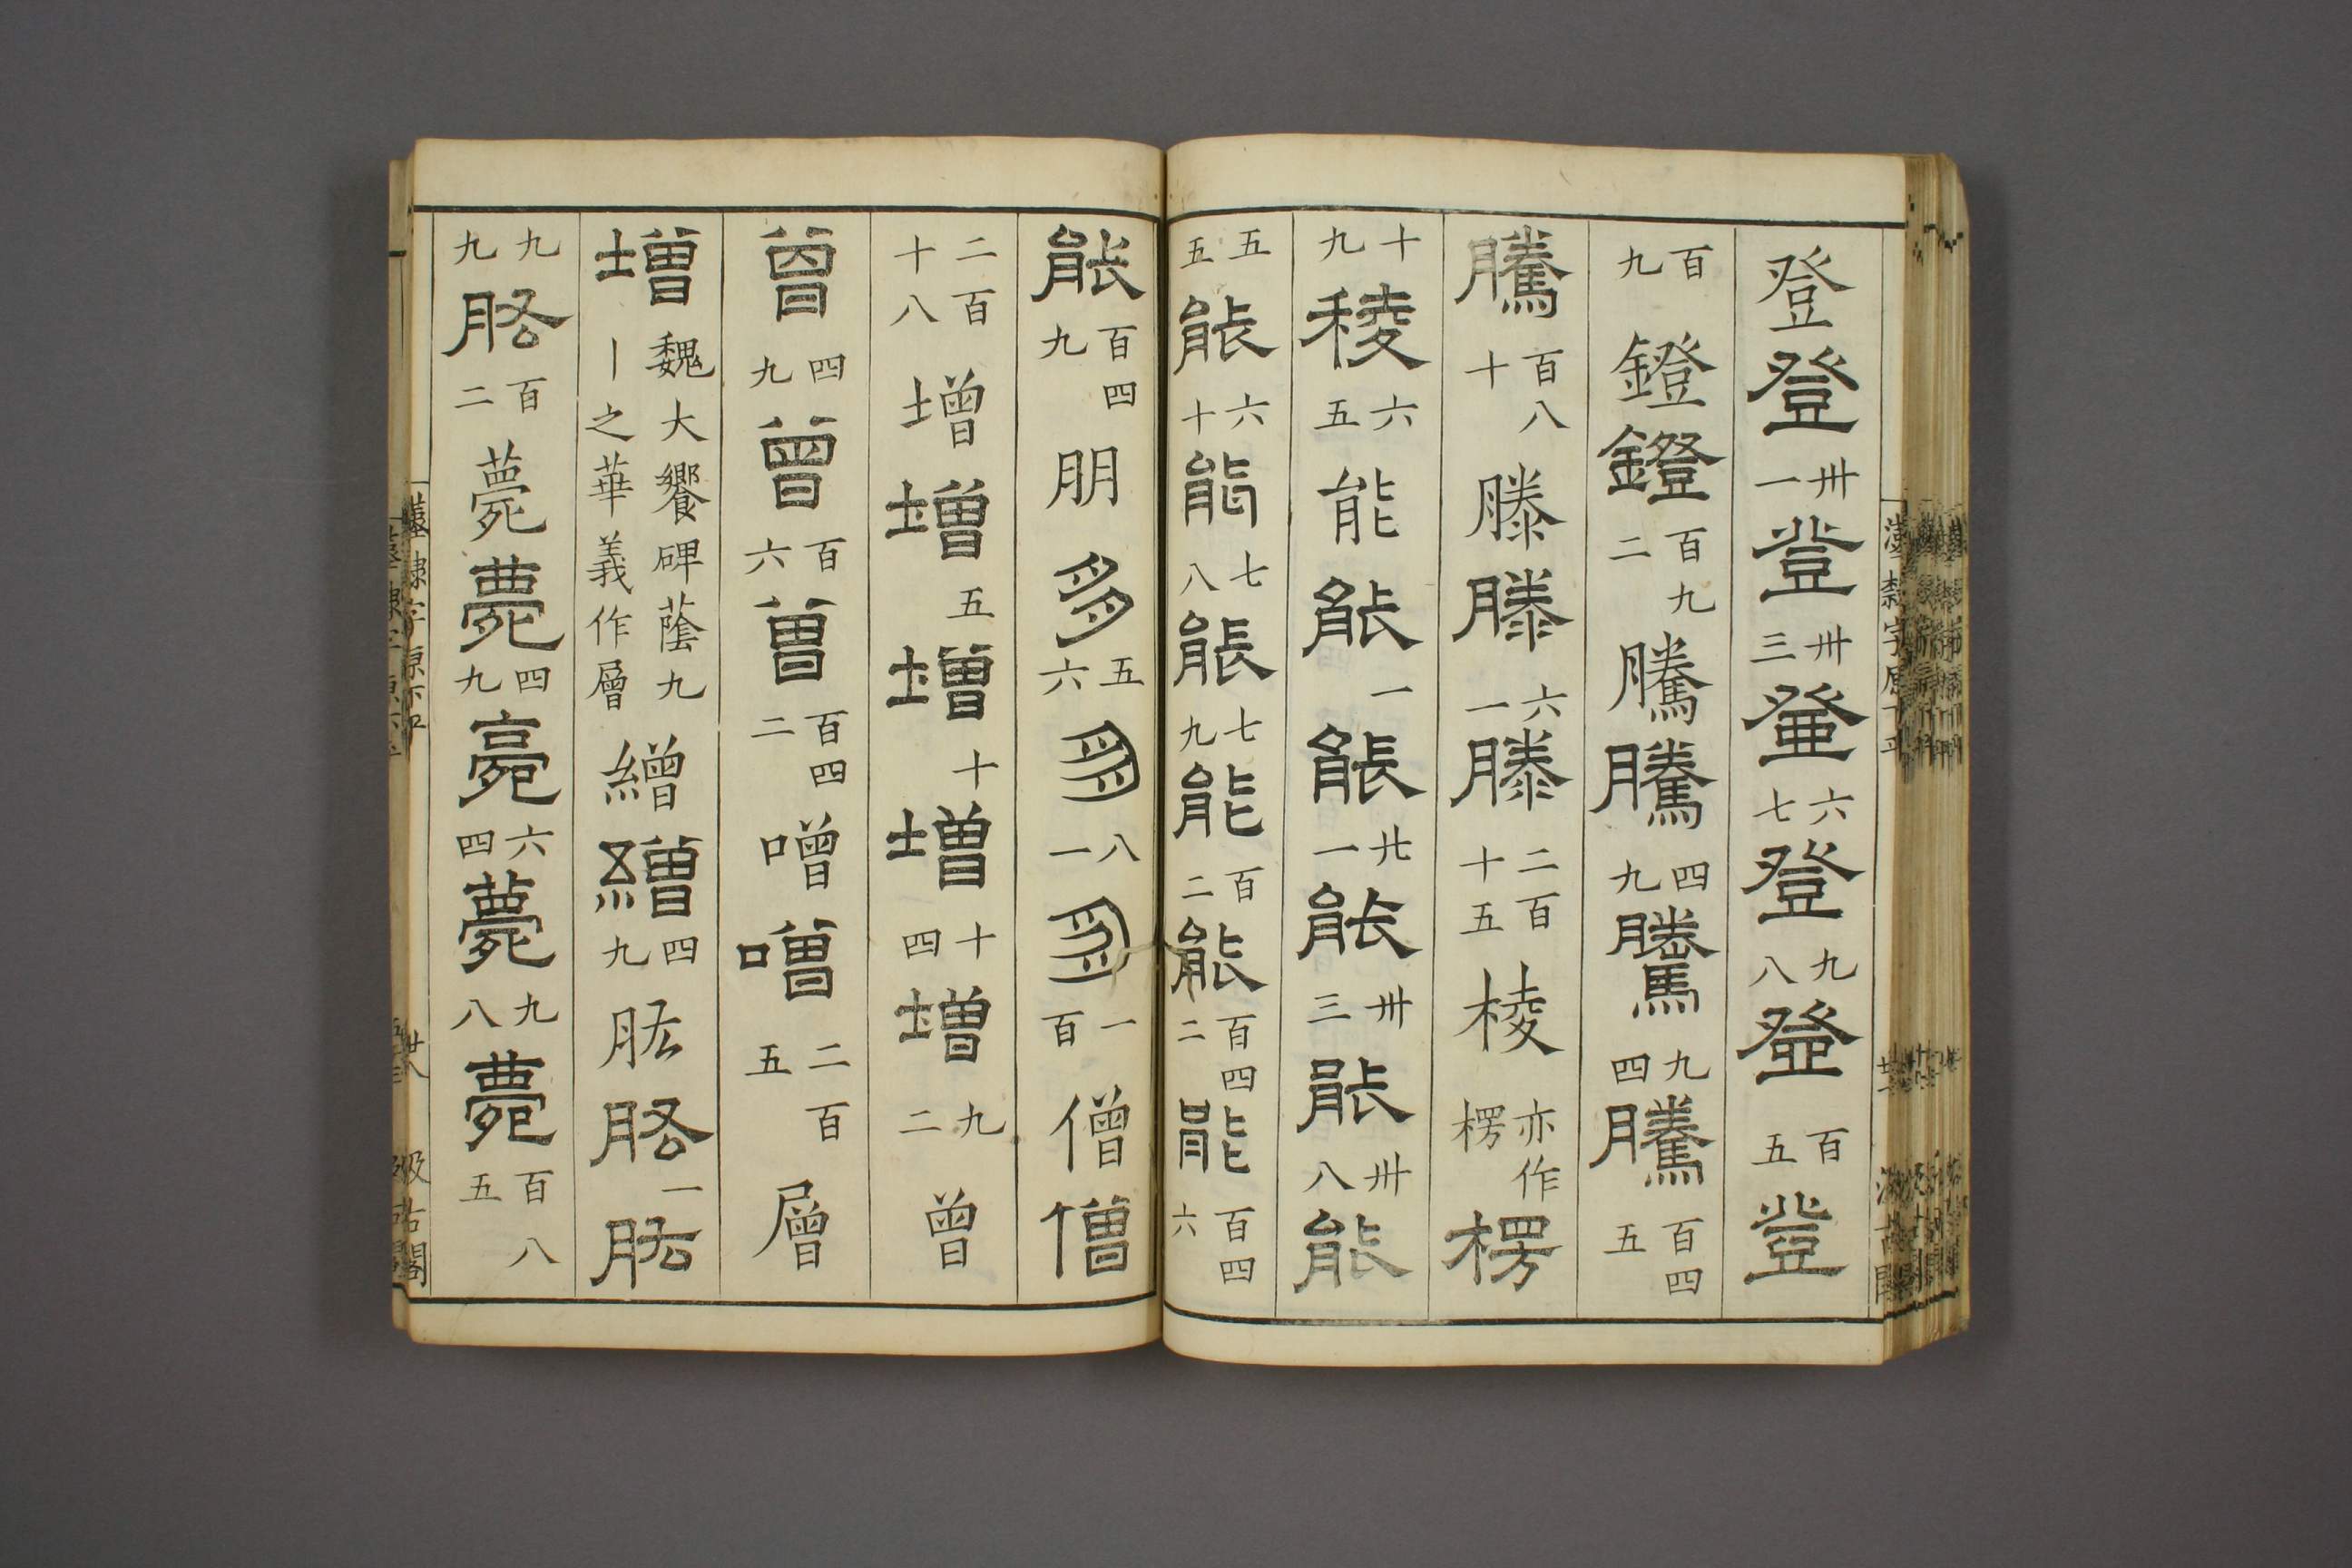 登登卅一登卅三登六七登九八登百五登
百九鐙鐙百九二騰騰四九騰九四騰百四五
騰百八十滕滕六一滕二百十五棱亦作楞楞
十九稜六五能能一能廿一能卅三能卅八能
五五能六十能七八能七九能百二能百四二能百四六
能百四九朋朋五六朋八一朋一百僧僧
二百十八增增五增十增十四增九二曾
曾四九曾百六曾百四二噌噌二百五層
增魏大饗碑蔭九丨之華義作層繒繒四九肱肱一肱
九九肱百二薨薨四九薨六四薨九八薨百八五
漢隸字原下平
汲古閣